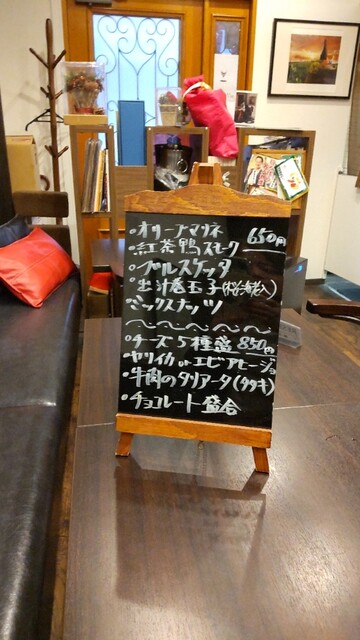 ・オリーブマリネ 650円
・紅茶鴨スモーク
・ブルスケッタ
・出汁巻玉子(桜海老入)
・ミックスナッツ
〜〜〜〜〜〜〜
・チーズ5種盛 850円
・ヤリイカ or エビアヒージョ
・牛肉のタリアータ(タタキ)
・チョコレート盛合